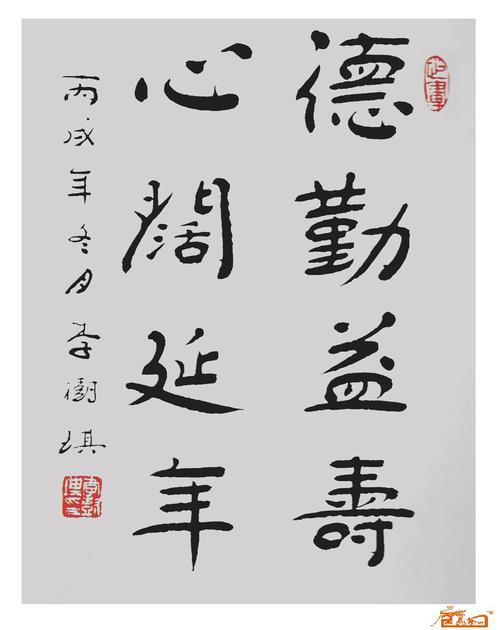 德勤益壽
心闊延年
丙戌年冬月李樹琪